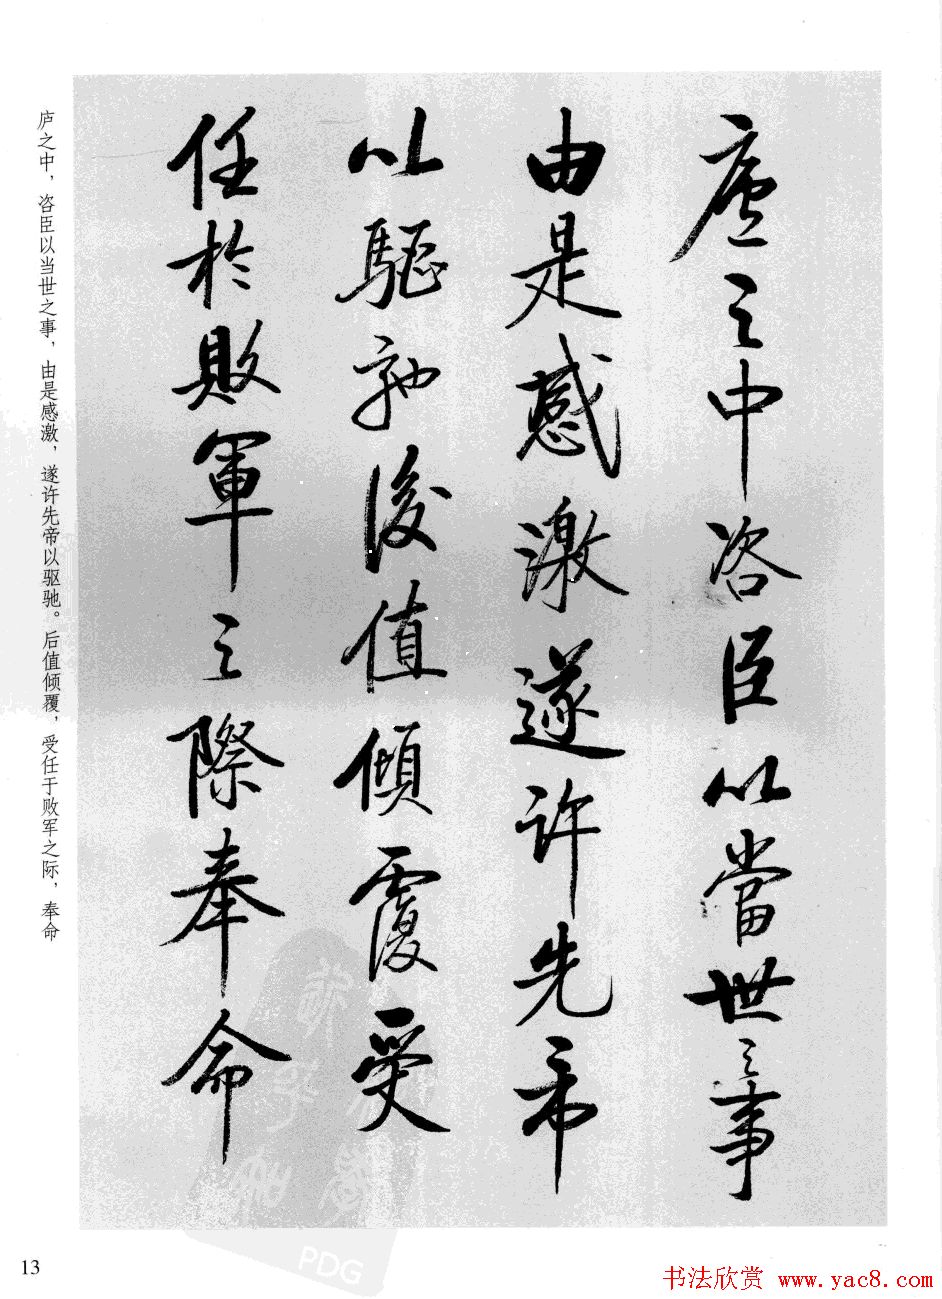 廬之中咨臣以當世之事
由是感激遂許先帝
以驅馳後值傾覆受
任於敗軍之際奉命
庐之中，咨臣以当世之事，由是感激，遂许先帝以驱驰。后值倾覆，受任于败军之际，奉命
13
PDG
书法欣赏 www.yac8.com